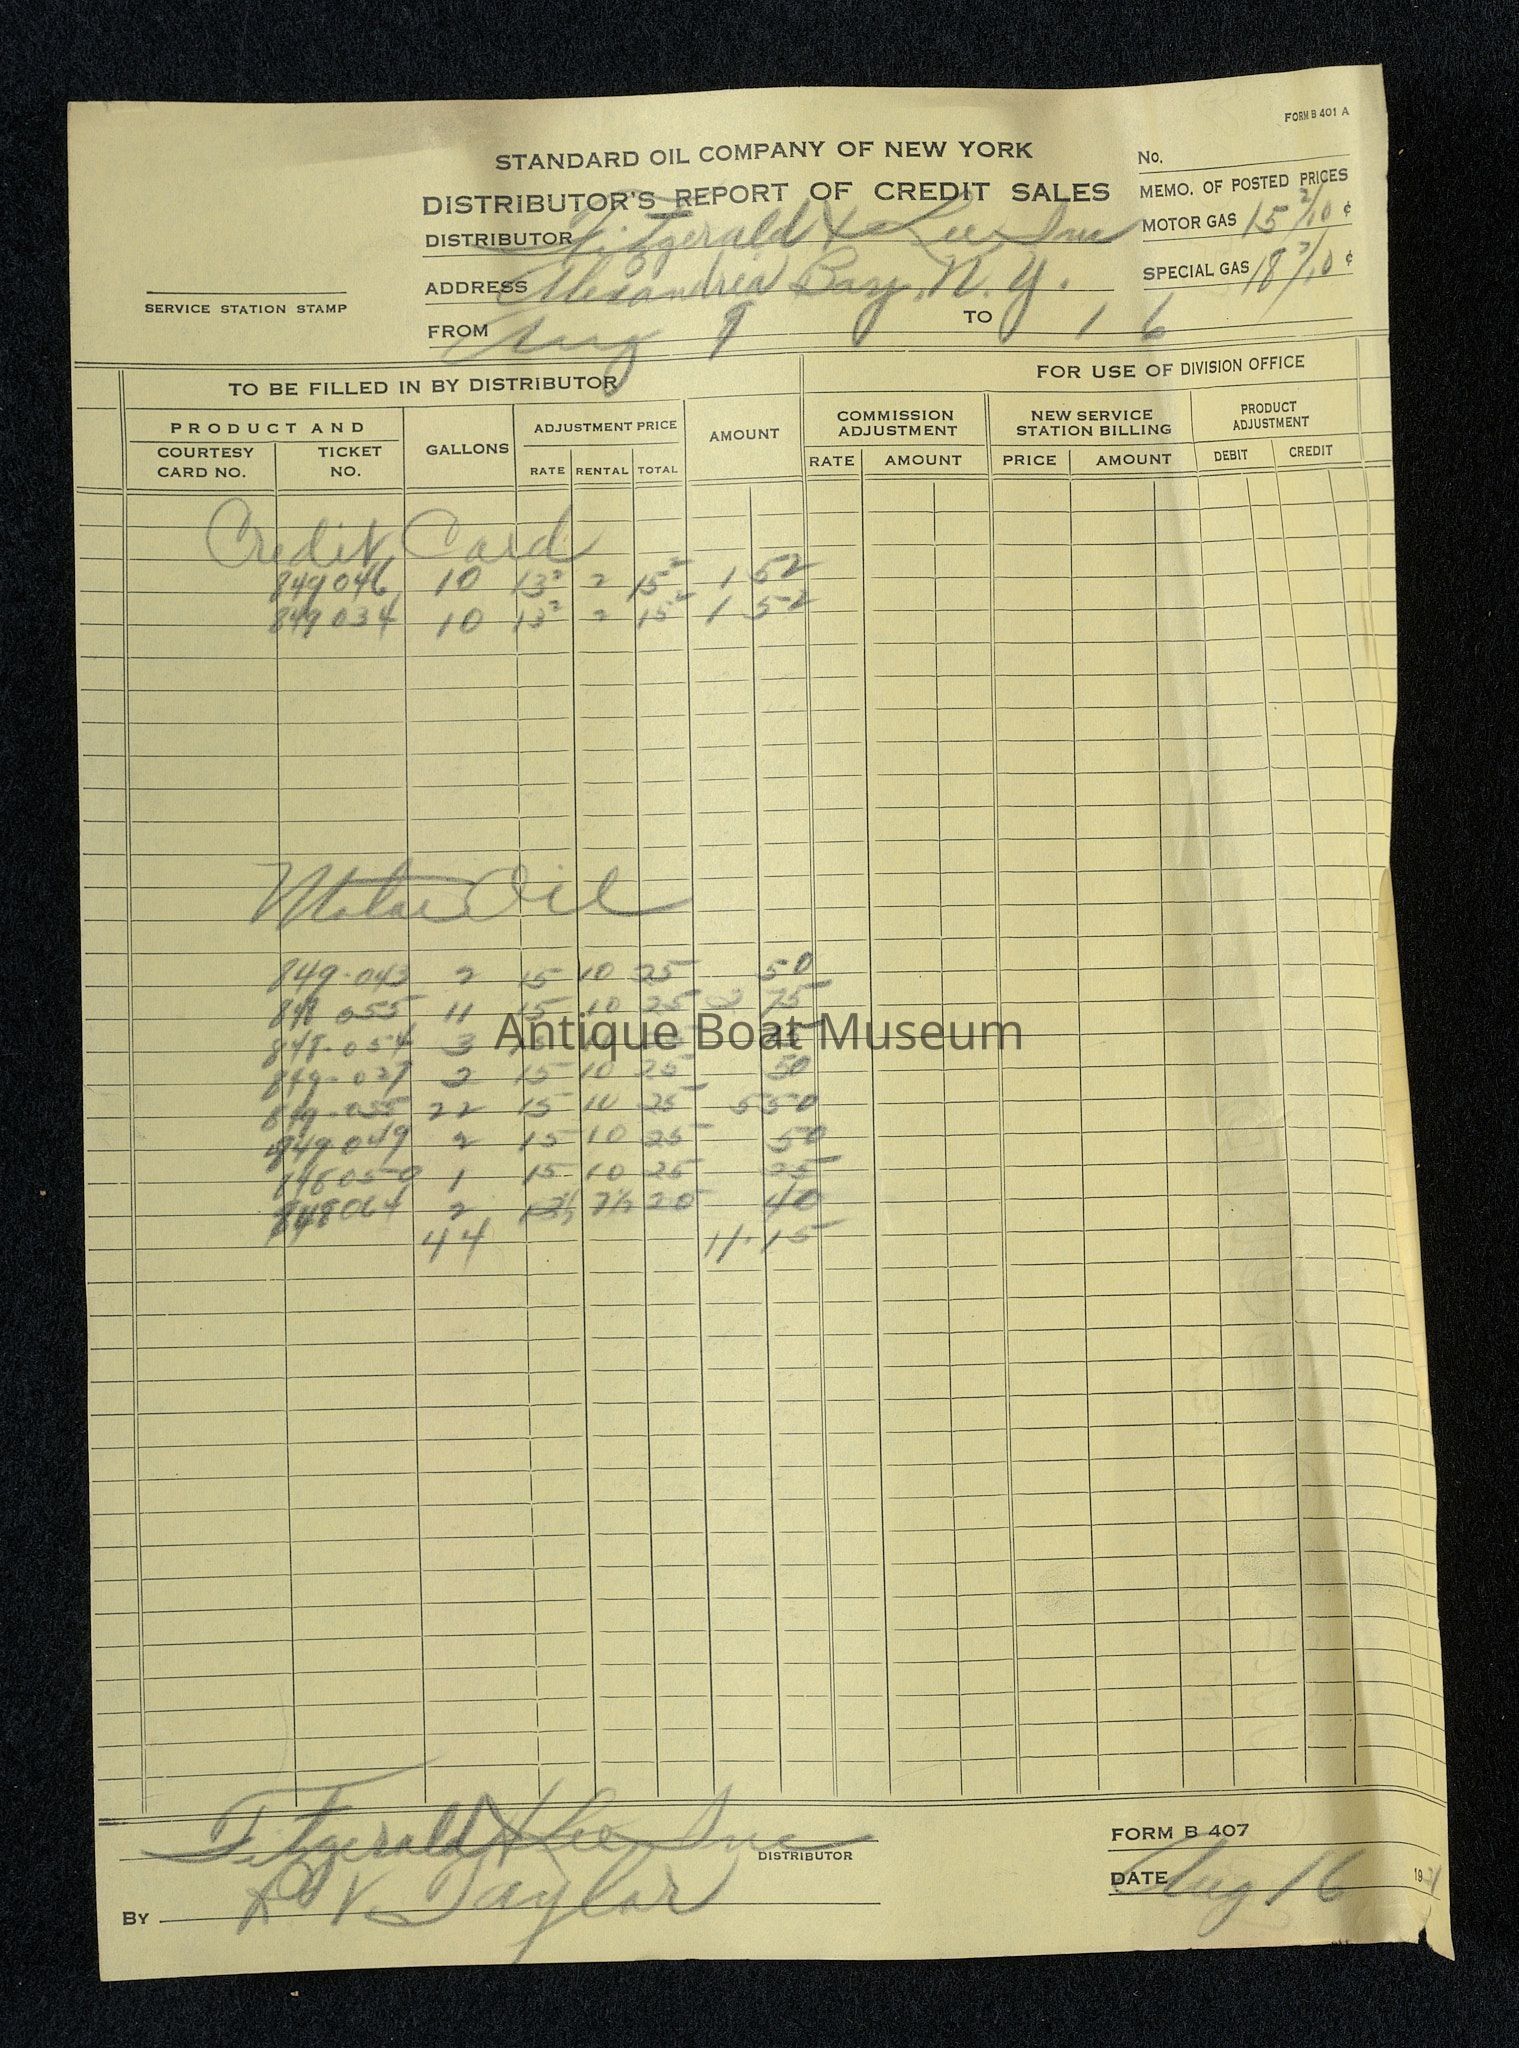 FORM B 401 A
STANDARD OIL COMPANY OF NEW YORK
No.
DISTRIBUTOR'S REPORT OF CREDIT SALES
MEMO. OF POSTED PRICES
DISTRIBUTOR Fitzgerald & Lee, Inc
MOTOR GAS 15 2/10 ¢
ADDRESS Alexandria Bay, N. Y.
SPECIAL GAS 18 2/10 ¢
SERVICE STATION STAMP
FROM Aug 9 TO 16
TO BE FILLED IN BY DISTRIBUTOR
FOR USE OF DIVISION OFFICE
PRODUCT AND
COURTESY CARD NO. TICKET NO. GALLONS ADJUSTMENT PRICE AMOUNT COMMISSION ADJUSTMENT NEW SERVICE STATION BILLING PRODUCT ADJUSTMENT
RATE RENTAL TOTAL RATE AMOUNT PRICE AMOUNT DEBIT CREDIT
Credit Card
849046 10 13² 2 15² 1 52
849034 10 13² 2 15² 1 52
Motor Oil
849-043 2 15 10 25 50
055 11 15 10 25 2 75
848-054 3 75
849-037 2 15 10 25 50
849-055 22 15 10 25 5 50
849049 2 15 10 25 50
050 1 15 10 25 25
848064 2 7½ 20 40
44 11.15
Antique Boat Museum
Fitzgerald & Lee, Inc
DISTRIBUTOR
FORM B 407
DATE Aug 16 1931
BY Taylor